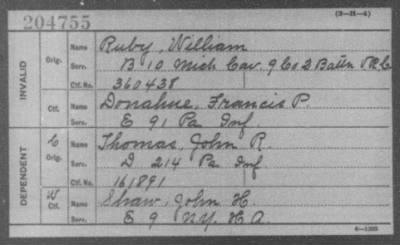 (3-H-4)
204755
INVALID
Orig.
Name Ruby, William
Serv. B 10 Mich Cav. 9 Co 2 Battn V.R.C.
Ctf. No. 360438
Ctf.
Name Donahue, Francis P.
Serv. E 91 Pa Inf
DEPENDENT
C
Orig.
Name Thomas, John R.
Serv. D 214 Pa Inf
Ctf. No. 161891
W
Ctf.
Name Shaw, John H.
Serv. E 9 N.Y. H A.